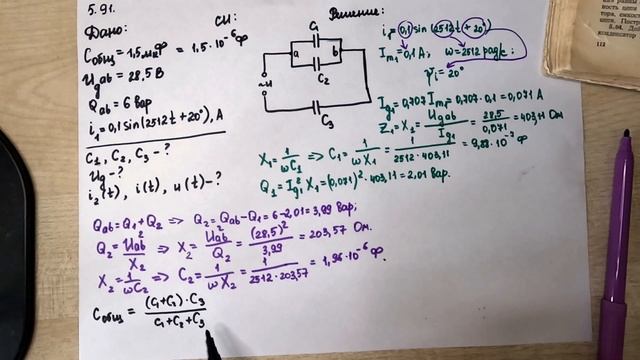 5.91.
Дано:
СИ:
Решение:
Cобщ = 1,5 мкФ = 1,5·10⁻⁶ Ф
Ugab = 28,5 В
Qab = 6 вар
i₁ = 0,1 sin(2512t + 20°), А
C₁, C₂, C₃ - ?
Ug - ?
i₂(t), i(t), u(t) - ?
C₁
a b
C₂
~u
C₃
i₁ = 0,1 sin(2512t + 20°)
Im₁ = 0,1 А; ω = 2512 рад/с;
ψi = 20°
Ig₁ = 0,707 Im₁ = 0,707·0,1 = 0,071 А
Z₁ = X₁ = Ugab/Ig₁ = 28,5/0,071 = 403,11 Ом
X₁ = 1/ωC₁ => C₁ = 1/ωX₁ = 1/2512·403,11 = 9,88·10⁻⁷ Ф
Q₁ = Ig₁² X₁ = (0,071)²·403,11 = 2,01 вар.
Qab = Q₁ + Q₂ => Q₂ = Qab - Q₁ = 6 - 2,01 = 3,99 вар;
Q₂ = Uab²/X₂ => X₂ = Uab²/Q₂ = (28,5)²/3,99 = 203,57 Ом.
X₂ = 1/ωC₂ => C₂ = 1/ωX₂ = 1/2512·203,57 = 1,96·10⁻⁶ Ф.
Cобщ = (C₁+C₂)·C₃/C₁+C₂+C₃
112